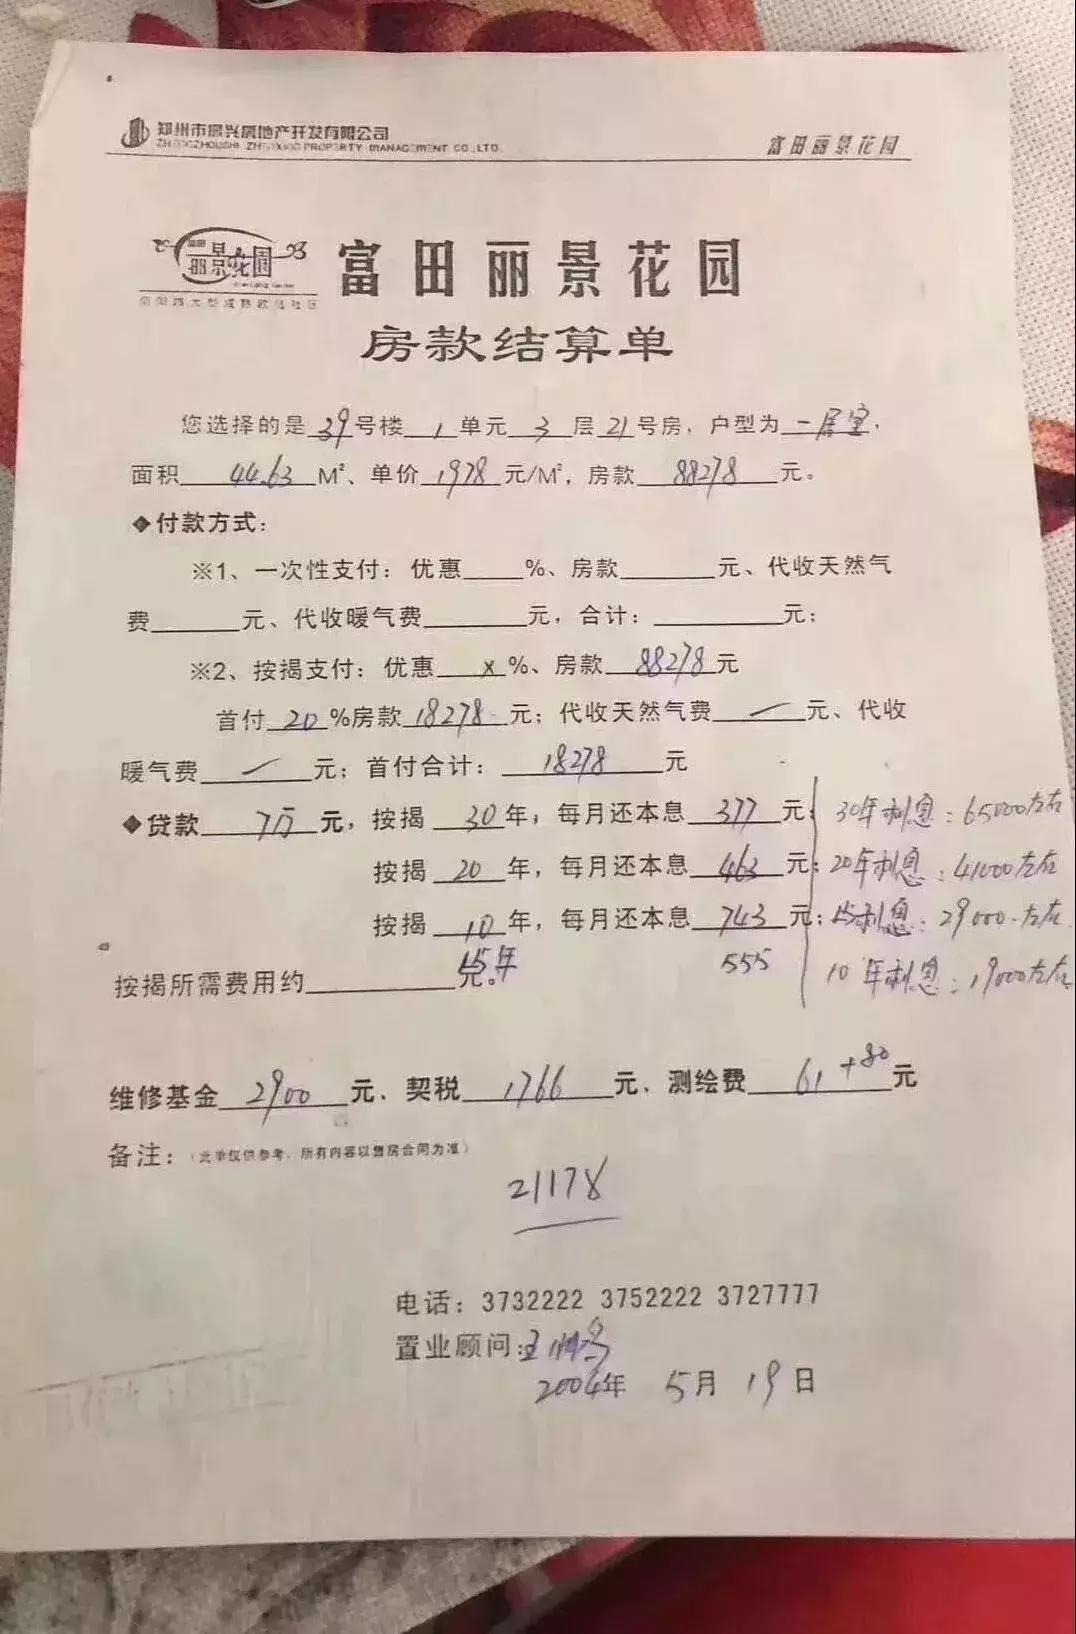 郑州市振兴房地产开发有限公司
富田丽景花园
富田
丽景花园
富田丽景花园
房款结算单
您选择的是39号楼1单元3层21号房，户型为一居室，
面积44.63M²、单价1978元/M²，房款88278元。
◆付款方式：
※1、一次性支付：优惠____%、房款______元、代收天然气
费______元、代收暖气费______元，合计：________元；
※2、按揭支付：优惠x%、房款88278元
首付20%房款18278元；代收天然气费—元、代收
暖气费—元；首付合计：18278元
◆贷款7万元，按揭30年，每月还本息377元； 30年利息：65000左右
按揭20年，每月还本息463元； 20年利息：41000左右
按揭10年，每月还本息743元； 15利息：29000左右
15年 555 10年利息：19000左右
按揭所需费用约________元。
维修基金2900元、契税1766元、测绘费61+80元
备注：（此单仅供参考，所有内容以售房合同为准）
21178
电话：3732222 3752222 3727777
置业顾问：王
2004年 5月 19日